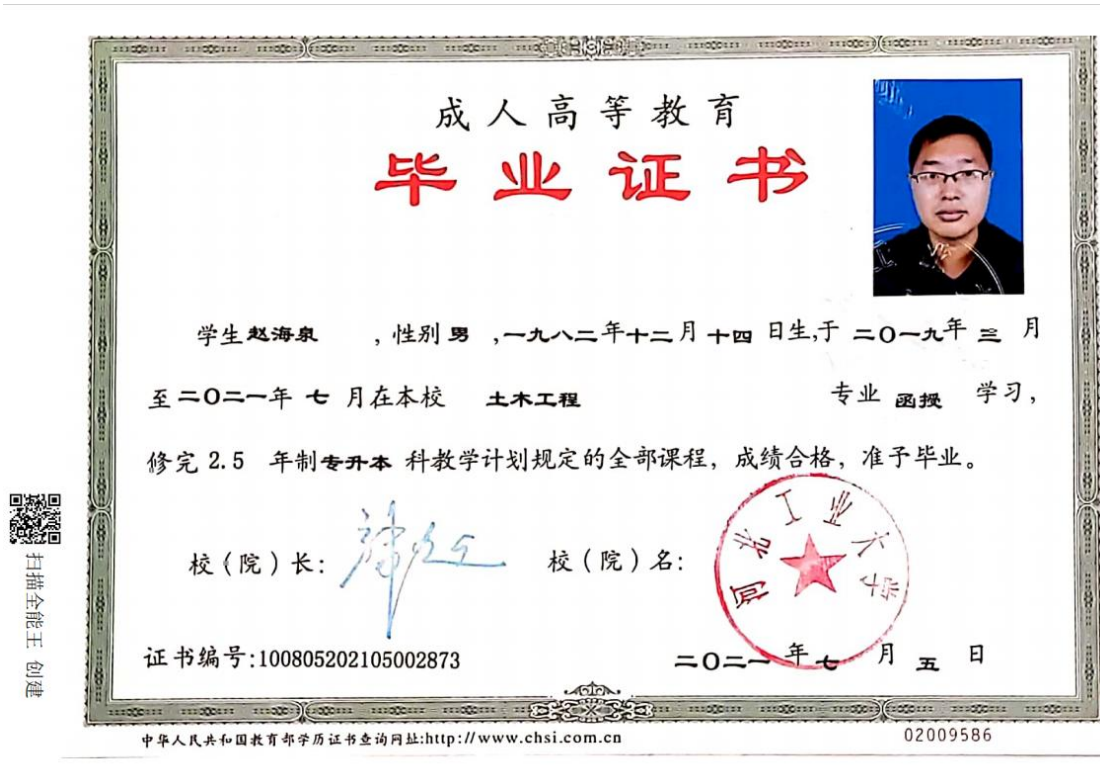 成人高等教育
毕业证书
学生赵海泉 ，性别男 ，一九八二年十二月十四日生，于二〇一九年三月
至二〇二一年七月在本校 土木工程 专业 函授 学习，
修完 2.5 年制专升本科教学计划规定的全部课程，成绩合格，准予毕业。
校（院）长： 校（院）名：
河北工业大学
证书编号:100805202105002873 二〇二一年七月五日
中华人民共和国教育部学历证书查询网址:http://www.chsi.com.cn 02009586
扫描全能王 创建